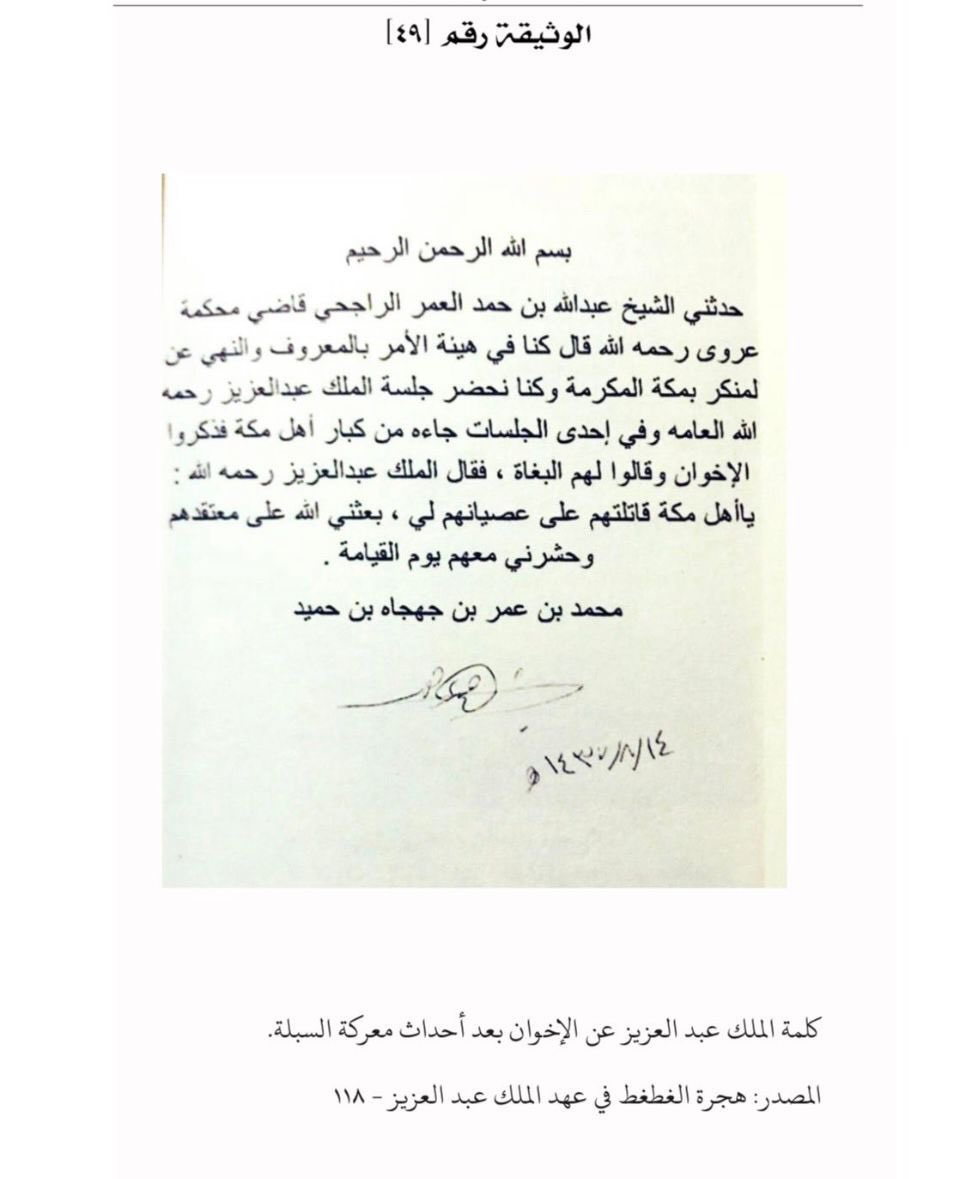 الوثيقة رقم [٤٩]
بسم الله الرحمن الرحيم
حدثني الشيخ عبدالله بن حمد العمر الراجحي قاضي محكمة
عروى رحمه الله قال كنا في هيئة الأمر بالمعروف والنهي عن
لمنكر بمكة المكرمة وكنا نحضر جلسة الملك عبدالعزيز رحمه
الله العامه وفي إحدى الجلسات جاءه من كبار أهل مكة فذكروا
الإخوان وقالوا لهم البغاة ، فقال الملك عبدالعزيز رحمه الله :
ياأهل مكة قاتلتهم على عصيانهم لي ، بعثني الله على معتقدهم
وحشرني معهم يوم القيامة .
محمد بن عمر بن جهجاه بن حميد
١٤٣٧/٨/١٤هـ
كلمة الملك عبد العزيز عن الإخوان بعد أحداث معركة السبلة.
المصدر: هجرة الغطغط في عهد الملك عبد العزيز - ١١٨